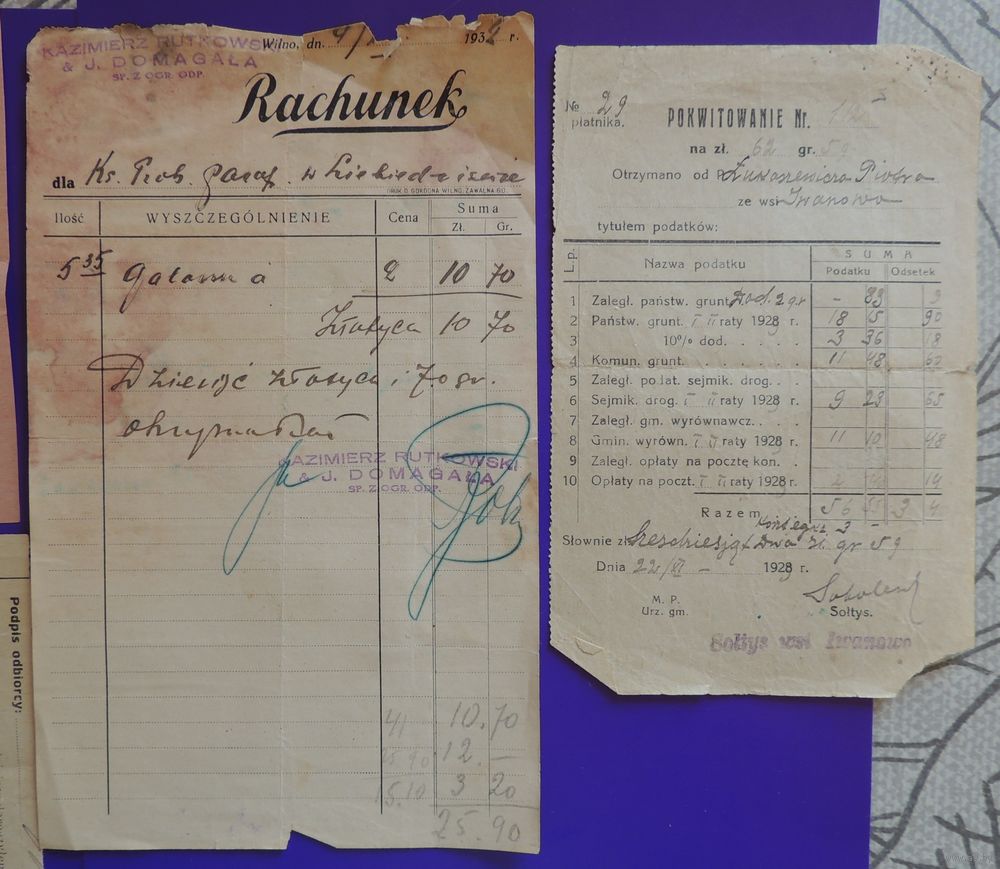 KAZIMIERZ RUTKOWSKI
& J. DOMAGAŁA
SP. Z OGR. ODP.
Wilno, dn. 9/ 1932 r.
Rachunek
dla Ks. Prob. paraf. w
DRUK D. GORDONA WILNO, ZAWALNA 60.
Ilość WYSZCZEGÓLNIENIE Cena Suma
Zł. Gr.
5 35 2 10 70
Złotych 10 70
złotych i 70 gr.
KAZIMIERZ RUTKOWSKI
& J. DOMAGAŁA
SP. Z OGR. ODP.
41 10.70
25 90 12.—
15.10 3 20
25.90
Podpis odbiorcy:
№ 29
płatnika.
POKWITOWANIE Nr.
na zł. 62 gr. 59
Otrzymano od P. Łukaszewicza Piotra
ze wsi Iwanowo
tytułem podatków:
L.p. Nazwa podatku SUMA
Podatku Odsetek
1 Zaległ. państw. grunt. Dod. 2 gr - 83 3
2 Państw. grunt. I II raty 1928 9 r. 18 15 90
3 10% dod. 3 36 18
4 Komun. grunt. 11 48 62
5 Zaległ. polat. sejmik. drog.
6 Sejmik. drog. I II raty 1928 9 r. 9 23 65
7 Zaległ. gm. wyrównawcz.
8 Gmin. wyrówn. I II raty 1928 9 r. 11 10 48
9 Zaległ. opłaty na pocztę kon.
10 Opłaty na poczt. I II raty 1928 9 r. 14
Razem 56 55 3 4
Słownie zł. Sześćdziesiąt Dwa zł. gr 59
Dnia 22/XI - 1928 9 r.
M. P.
Urz. gm.
Sołtys.
Sołtys wsi Iwanowo